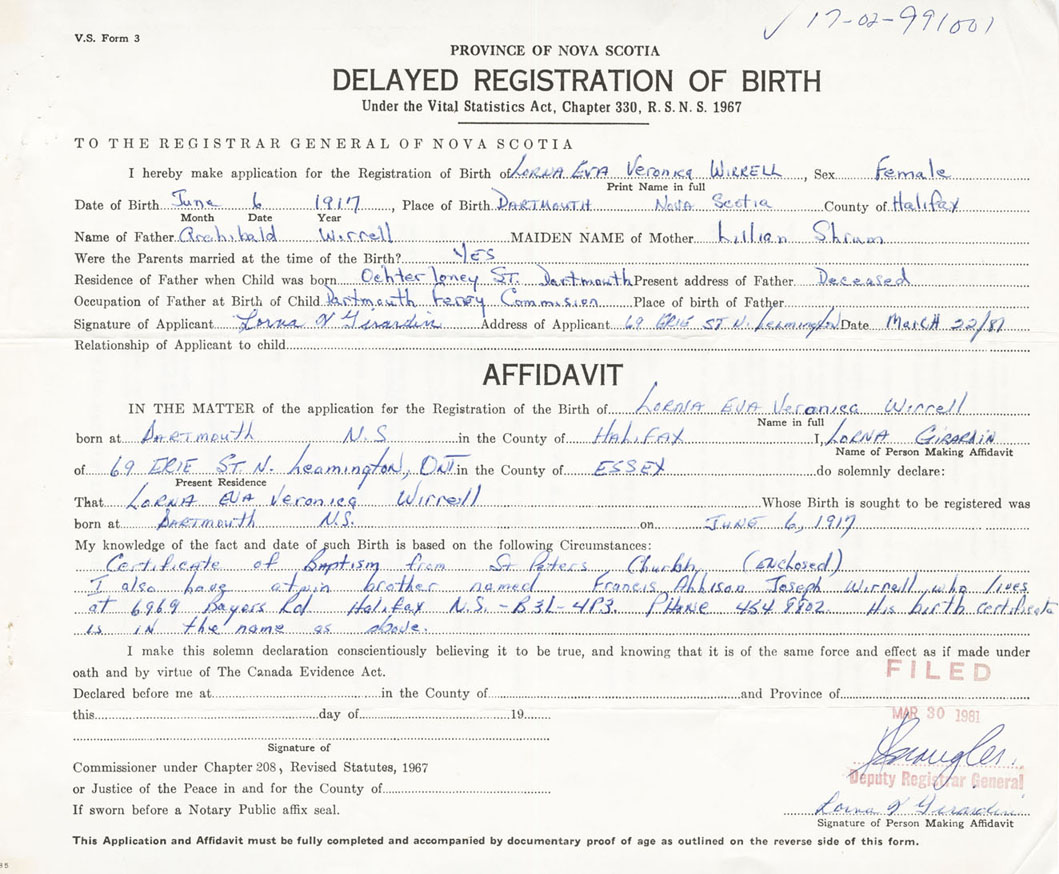 17-02-991001
V.S. Form 3
PROVINCE OF NOVA SCOTIA
DELAYED REGISTRATION OF BIRTH
Under the Vital Statistics Act, Chapter 330, R.S.N.S. 1967
TO THE REGISTRAR GENERAL OF NOVA SCOTIA
I hereby make application for the Registration of Birth of LORNA EVA Veronica WIRRELL, Sex Female
Print Name in full
Date of Birth June 6 1917, Place of Birth DARTMOUTH NOVA Scotia County of Halifax
Month Date Year
Name of Father Archibald Wirrell MAIDEN NAME of Mother Lillian Shrum
Were the Parents married at the time of the Birth? YES
Residence of Father when Child was born Ochterloney ST. Dartmouth Present address of Father Deceased
Occupation of Father at Birth of Child Dartmouth Ferry Commision Place of birth of Father
Signature of Applicant Lorna V Girardin Address of Applicant 69 ERIE ST. N. Leamington Date MarcH 22/81
Relationship of Applicant to child
AFFIDAVIT
IN THE MATTER of the application for the Registration of the Birth of LORNA EVA Veronica Wirrell
Name in full
born at DARTMOUTH N.S in the County of HALIFAX I, LORNA GIRARDIN
Name of Person Making Affidavit
of 69 ERIE ST. N. Leamington, ONT in the County of ESSEX do solemnly declare:
Present Residence
That LORNA EVA Veronica Wirrell Whose Birth is sought to be registered was
born at DARTMOUTH N.S. on JUNE 6, 1917
My knowledge of the fact and date of such Birth is based on the following Circumstances:
Certificate of Baptism from St Peters Church (enclosed)
I also have a twin brother named Francis Joseph Wirrell, who lives
at 6969 Bayers Rd. Halifax N.S. - B3L-4P3. PHONE 454 8802. His birth certificate
is in the name as above.
I make this solemn declaration conscientiously believing it to be true, and knowing that it is of the same force and effect as if made under
oath and by virtue of The Canada Evidence Act.
FILED
Declared before me at in the County of and Province of
this day of 19
MAR 30 1981
Signature of
Commissioner under Chapter 208, Revised Statutes, 1967
Deputy Registrar General
or Justice of the Peace in and for the County of
If sworn before a Notary Public affix seal.
Lorna V Girardin
Signature of Person Making Affidavit
This Application and Affidavit must be fully completed and accompanied by documentary proof of age as outlined on the reverse side of this form.
85